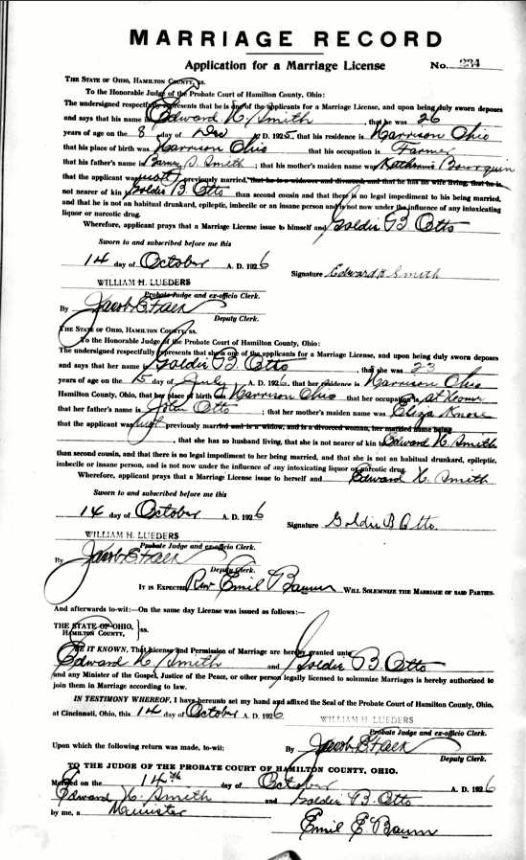 MARRIAGE RECORD
Application for a Marriage License
No. 234
THE STATE OF OHIO, HAMILTON COUNTY, ss.
To the Honorable Judge of the Probate Court of Hamilton County, Ohio:
The undersigned respectfully represents that he is one of the applicants for a Marriage License, and upon being duly sworn deposes
and says that his name is Edward H. Smith, that he was 26
years of age on the 8 day of Nov A. D. 1925, that his residence is Harrison Ohio
that his place of birth was Harrison Ohio that his occupation is Farmer
that his father's name is S. Smith; that his mother's maiden name was Bourquin
that the applicant was not previously married, that he is a widower and divorced, and that he has no wife living, that he is
not nearer of kin Goldie B. Otto than second cousin and that there is no legal impediment to his being married,
and that he is not an habitual drunkard, epileptic, imbecile or an insane person and is not now under the influence of any intoxicating
liquor or narcotic drug.
Wherefore, applicant prays that a Marriage License issue to himself and Goldie B. Otto
Sworn to and subscribed before me this
14 day of October A. D. 1926
Signature Edward H Smith
WILLIAM H. LUEDERS
Probate Judge and ex-officio Clerk.
By Jacob E Faeh
Deputy Clerk.
THE STATE OF OHIO, HAMILTON COUNTY, ss.
To the Honorable Judge of the Probate Court of Hamilton County, Ohio:
The undersigned respectfully represents that she is one of the applicants for a Marriage License, and upon being duly sworn deposes
and says that her name is Goldie B. Otto, that she was 23
years of age on the 15 day of July A. D. 1926, that her residence is Harrison Ohio
Hamilton County, Ohio, that her place of birth Harrison Ohio that her occupation is at Home
that her father's name is John Otto; that her mother's maiden name was Eliza
that the applicant was not previously married and is a widow, and is a divorced woman, her married name being
, that she has no husband living, that she is not nearer of kin Edward H. Smith
than second cousin, and that there is no legal impediment to her being married, and that she is not an habitual drunkard, epileptic,
imbecile or insane person, and is not now under the influence of any intoxicating liquor or narcotic drug.
Wherefore, applicant prays that a Marriage License issue to herself and Edward H. Smith
Sworn to and subscribed before me this
14 day of October A. D. 1926
Signature Goldie B Otto.
WILLIAM H. LUEDERS
Probate Judge and ex-officio Clerk.
By Jacob E Faeh
Deputy Clerk.
IT IS EXPECTED Rev Emil Baum WILL SOLEMNIZE THE MARRIAGE OF SAID PARTIES.
And afterwards to-wit:—On the same day License was issued as follows:—
THE STATE OF OHIO,
HAMILTON COUNTY, ss.
BE IT KNOWN, That License and Permission of Marriage are hereby granted unto
Edward H. Smith and Goldie B. Otto
and any Minister of the Gospel, Justice of the Peace, or other person legally licensed to solemnize Marriages is hereby authorized to
join them in Marriage according to law.
IN TESTIMONY WHEREOF, I have hereunto set my hand and affixed the Seal of the Probate Court of Hamilton County, Ohio,
at Cincinnati, Ohio, this 14 day of October A. D. 1926
WILLIAM H. LUEDERS
Probate Judge and ex-officio Clerk.
Upon which the following return was made, to-wit:
By Jacob E Faeh
Deputy Clerk.
TO THE JUDGE OF THE PROBATE COURT OF HAMILTON COUNTY, OHIO.
Married on the 14th day of October A. D. 1926
Edward H. Smith and Goldie B. Otto
by me, a Minister
Emil E Baum